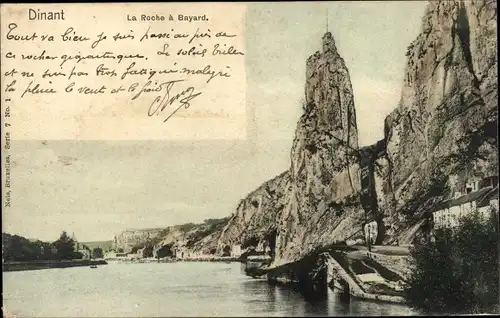 Dinant
La Roche à Bayard.
Tout va bien, je suis passé au pied de
ce rocher gigantesque. Le soleil brille
et ne suis pas trop fatigué malgré
la pluie le vent et le froid.
Nels, Bruxelles, Serie 7 No. 1